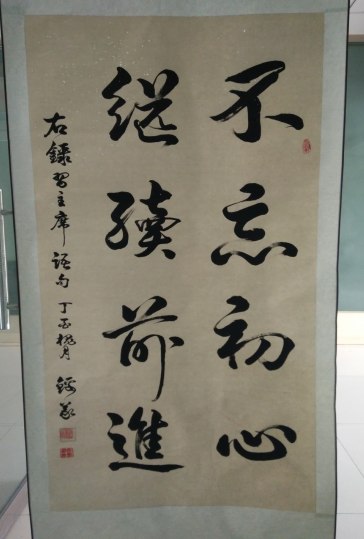 不忘初心
继續前進
右錄習主席語句 丁酉桃月